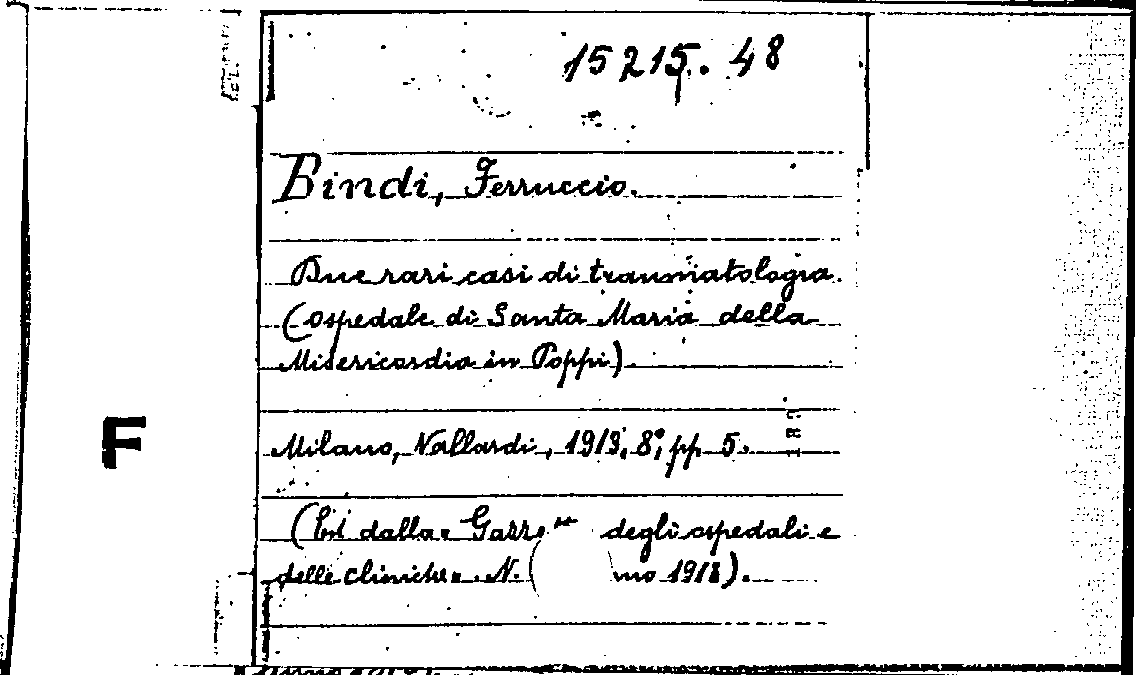 15215. 48
Bindi, Ferruccio.
Due rari casi di traumatologia.
(Ospedale di Santa Maria della
Misericordia in Poppi).
F
Milano, Vallardi, 1913, 8°, pp. 5.
(Est. dalla degli ospedali e
delle cliniche N. 1913).